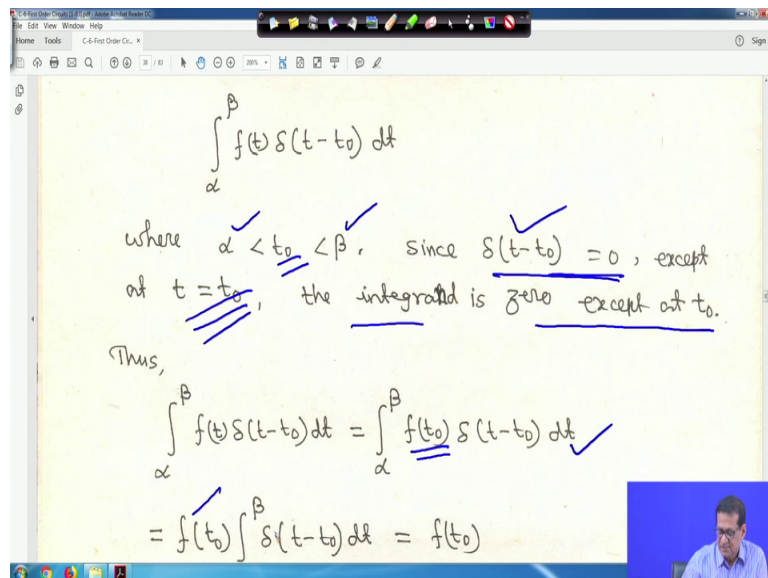 C-6-First Order Circuits (1-83).pdf - Adobe Acrobat Reader DC
File Edit View Window Help
Home Tools C-6-First Order Cir... × Sign
38 / 83 200%
∫_α^β f(t) δ(t-t₀) dt
where α < t₀ < β. Since δ(t-t₀) = 0, except
at t = t₀, the integrand is zero except at t₀.
Thus,
∫_α^β f(t) δ(t-t₀) dt = ∫_α^β f(t₀) δ(t-t₀) dt
= f(t₀) ∫^β δ(t-t₀) dt = f(t₀)